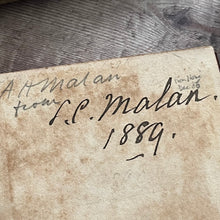 A H Malan
from S. C. Malan.
1889.